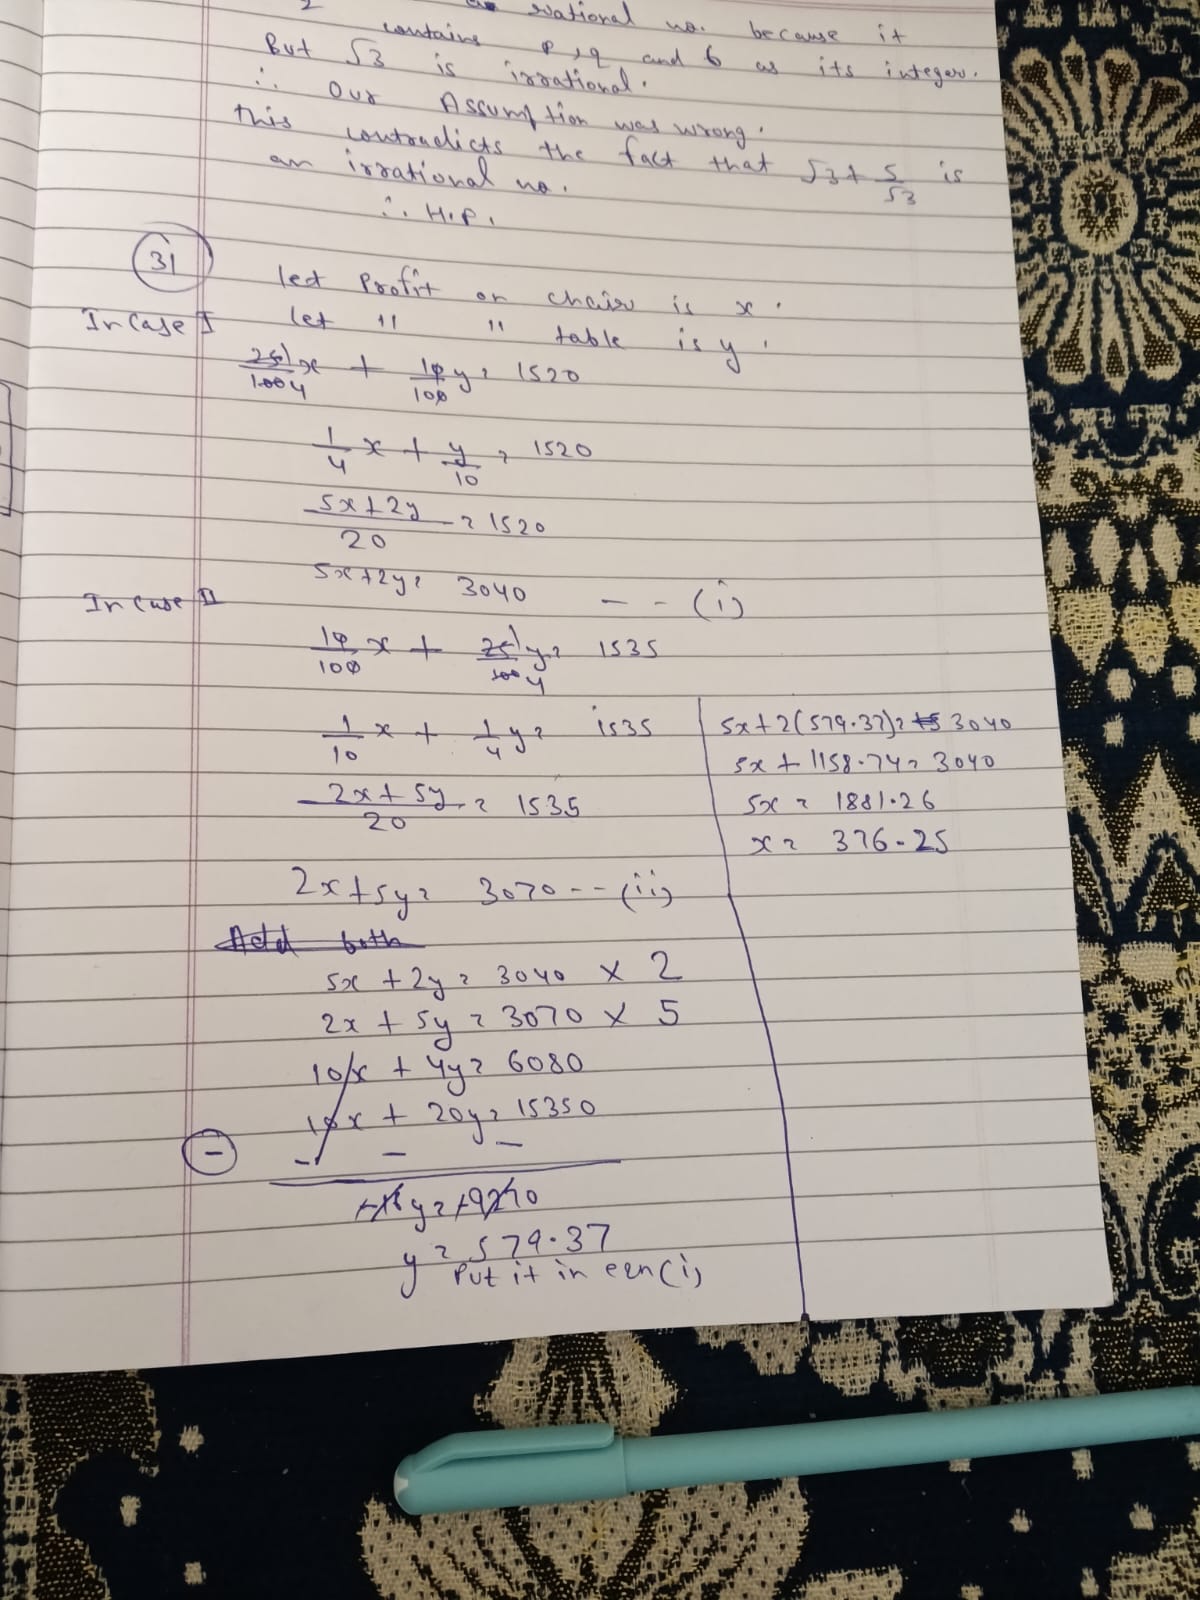 rational no. because it
contains p, q and 6 as its integer.
But √3 is irrational.
∴ Our Assumption was wrong.
This contradicts the fact that √3 + 5/√3 is
an irrational no.
∴ H.P.
31
let Profit on chair is x.
In Case I let 11 11 table is y.
25/100 x + 10/100 y = 1520
1/4 x + y/10 = 1520
5x+2y/20 = 1520
5x+2y = 3040 -- (i)
In Case II
10/100 x + 25/100 y = 1535
1/10 x + 1/4 y = 1535
2x+5y/20 = 1535
2x+5y = 3070 -- (ii)
Add both
5x + 2y = 3040 × 2
2x + 5y = 3070 × 5
10x + 4y = 6080
10x + 20y = 15350
- - -
+16y = +9270
y = 579.37
Put it in eqn (i)
5x+2(579.37) = 3040
5x + 1158.74 = 3040
5x = 1881.26
x = 376.25